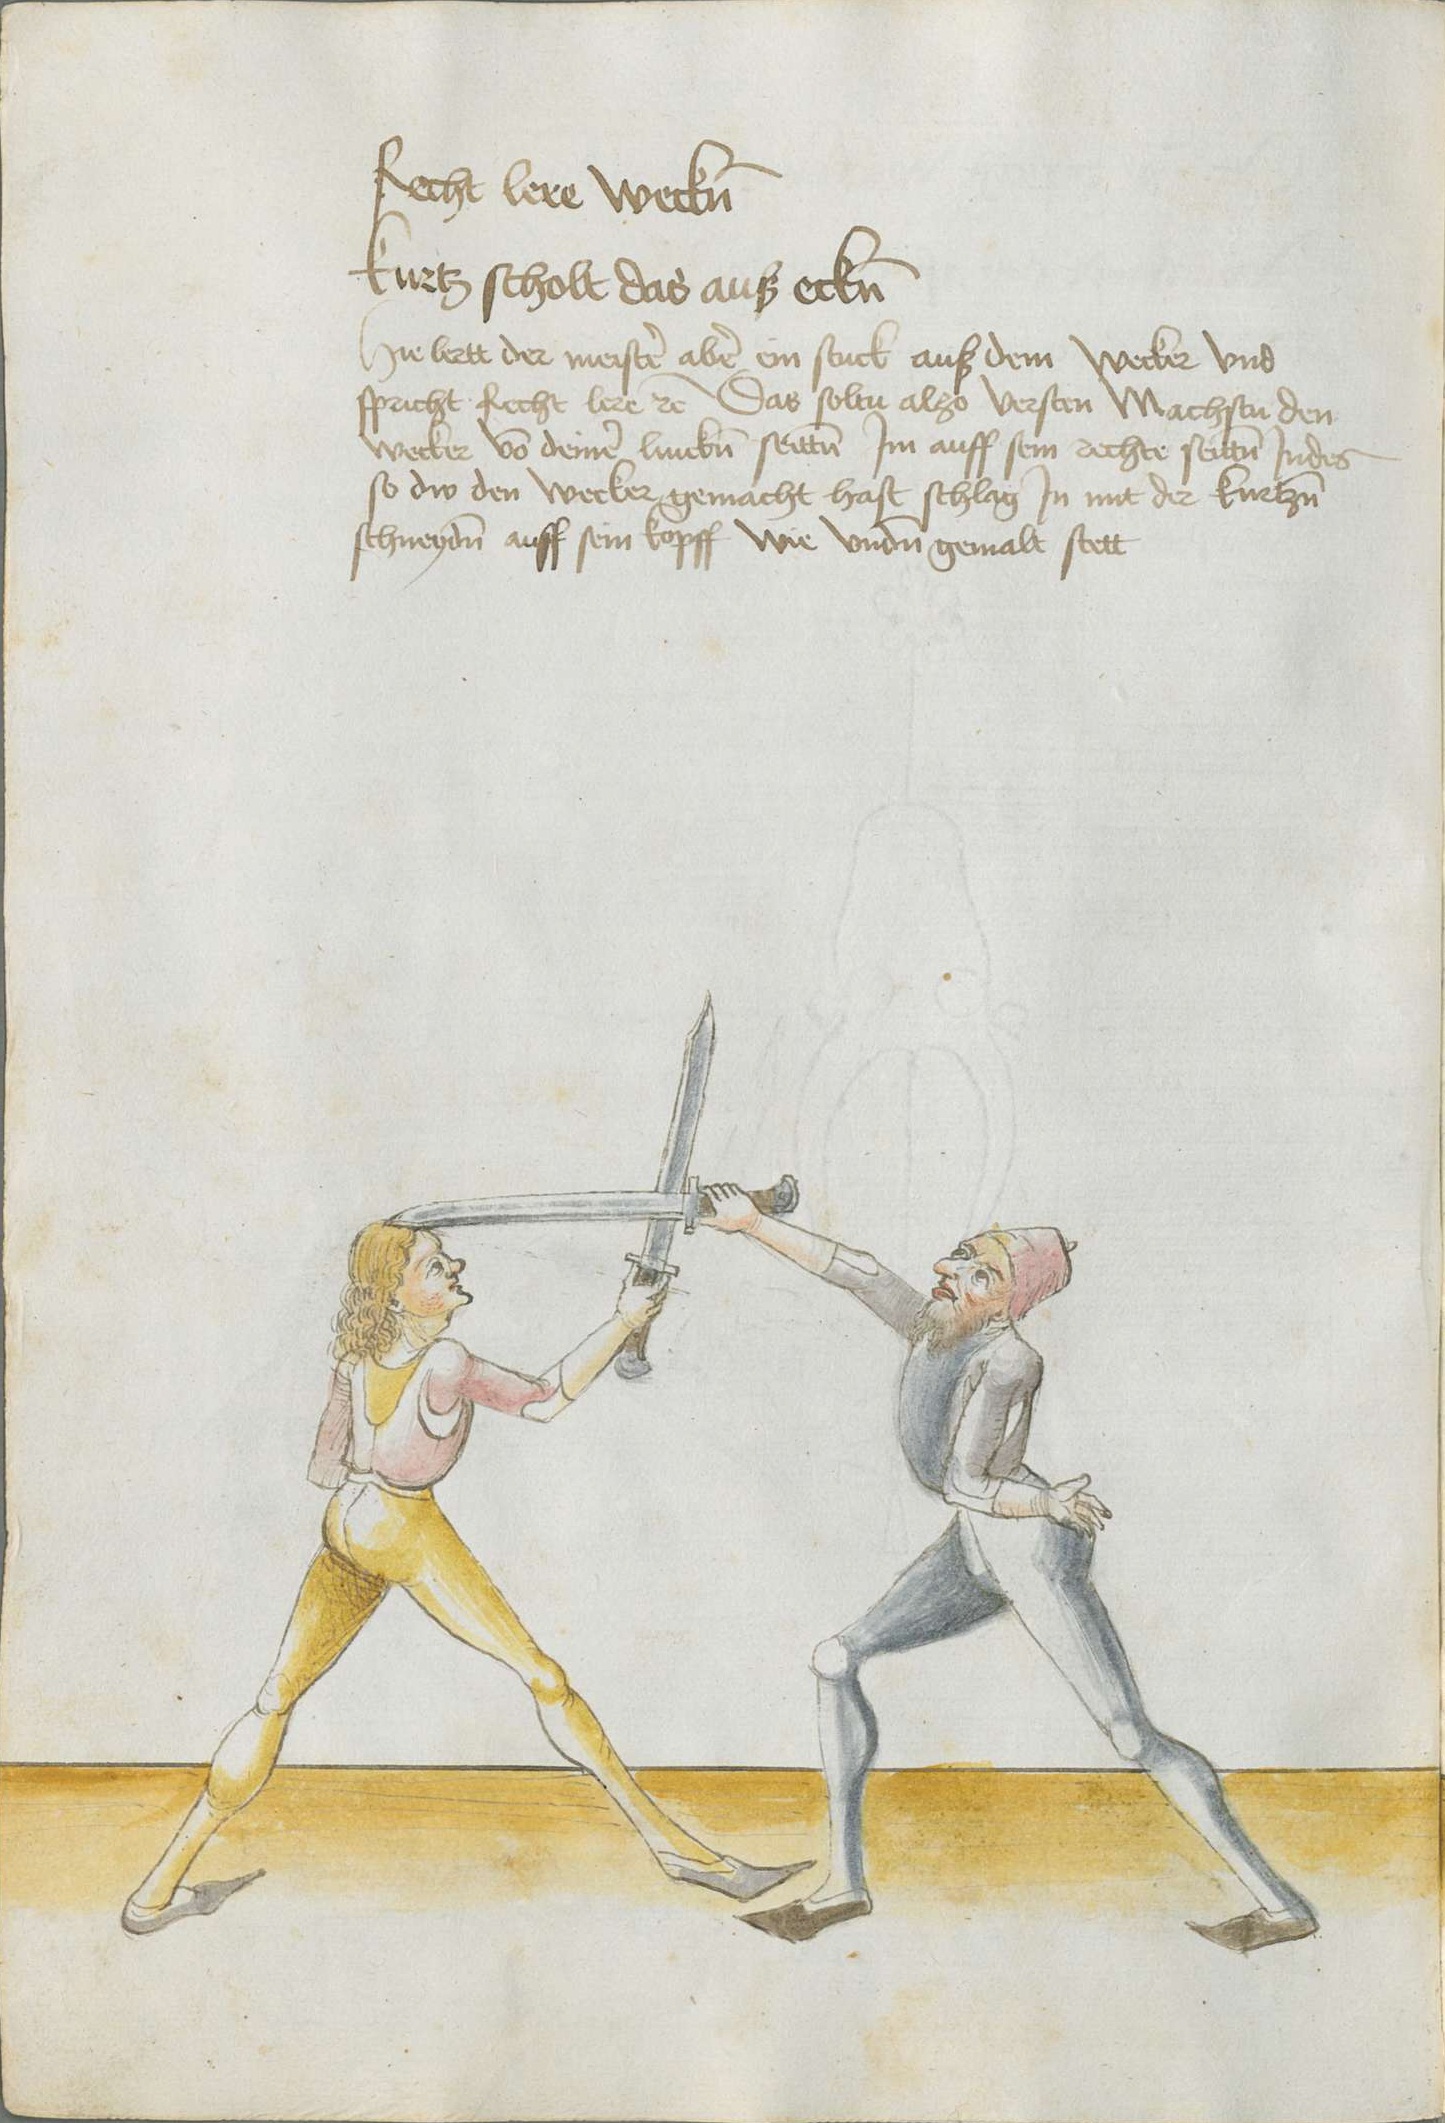 Recht lere weckñ
kurtz scholt das auß eckñ
Hie lertt der meister̃ aber̃ ein stuck auß dem wecker vnd
spricht Recht lere ꝛc Das soltu alzo versten Machstu den
wecker võ deiner̃ linckñ seittñ Im auff sein rechte seittñ Indes
so dw den wecker gemacht hast schlag In mit der kurtzñ
schneydñ auff sein kopff wie vndñ gemalt stett